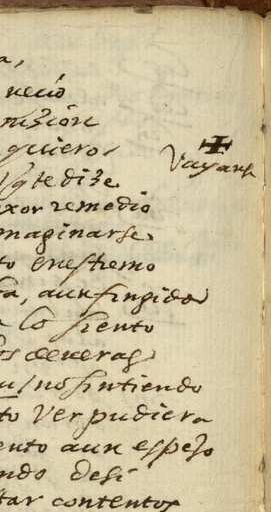 a,
necio
quiero
Vayanse
q te dize
remedio
maginarse
to en estremo
sa, aun fingida
a lo siento
os de veras
no sintiendo
to ver pudiera
ento aun espejo
ndo de si
tar contentos